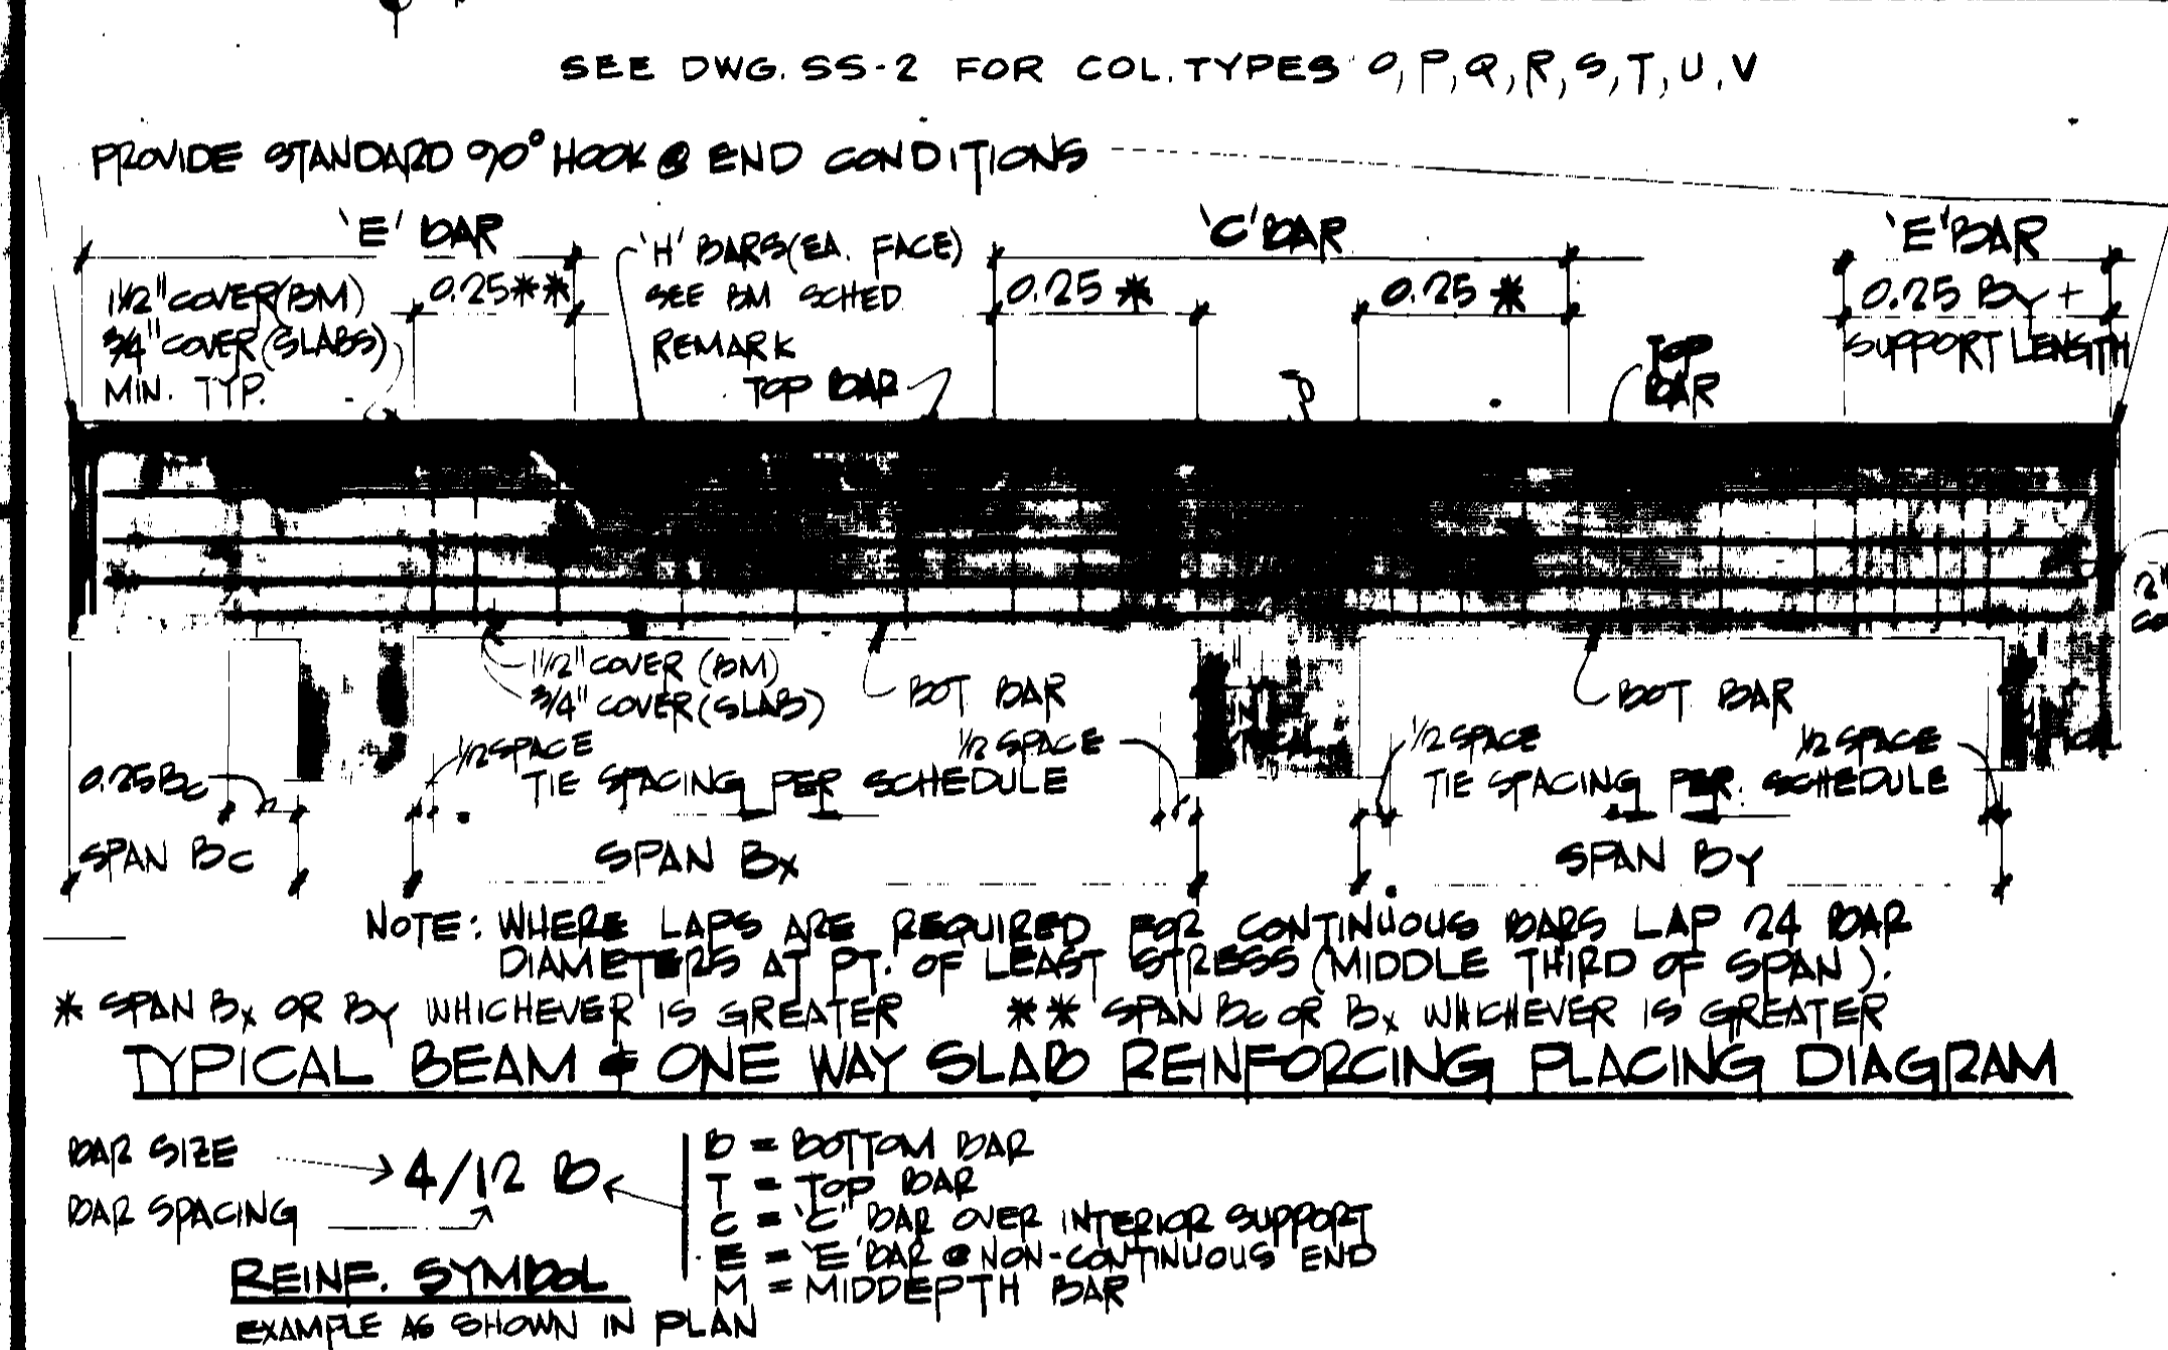 SEE DWG. SS-2 FOR COL. TYPES O, P, Q, R, S, T, U, V
PROVIDE STANDARD 90° HOOK @ END CONDITIONS
'E' BAR
'C' BAR
'E' BAR
'H' BARS (EA. FACE)
SEE BM SCHED
REMARK
1 1/2" COVER (BM)
3/4" COVER (SLABS)
MIN. TYP.
0.25**
0.25 *
0.25 *
0.25 BY +
SUPPORT LENGTH
TOP BAR
TOP
BAR
2"
1 1/2" COVER (BM)
3/4" COVER (SLAB)
BOT BAR
BOT BAR
1/2 SPACE
1/2 SPACE
1/2 SPACE
1/2 SPACE
TIE SPACING PER SCHEDULE
TIE SPACING PER SCHEDULE
0.25 BC
SPAN BC
SPAN BX
SPAN BY
NOTE: WHERE LAPS ARE REQUIRED FOR CONTINUOUS BARS LAP 24 BAR
DIAMETERS AT PT. OF LEAST STRESS (MIDDLE THIRD OF SPAN).
* SPAN BX OR BY WHICHEVER IS GREATER
** SPAN BC OR BX WHICHEVER IS GREATER
TYPICAL BEAM & ONE WAY SLAB REINFORCING PLACING DIAGRAM
BAR SIZE
BAR SPACING
4/12 B
B = BOTTOM BAR
T = TOP BAR
C = 'C' BAR OVER INTERIOR SUPPORT
E = 'E' BAR @ NON-CONTINUOUS END
M = MIDDEPTH BAR
REINF. SYMBOL
EXAMPLE AS SHOWN IN PLAN